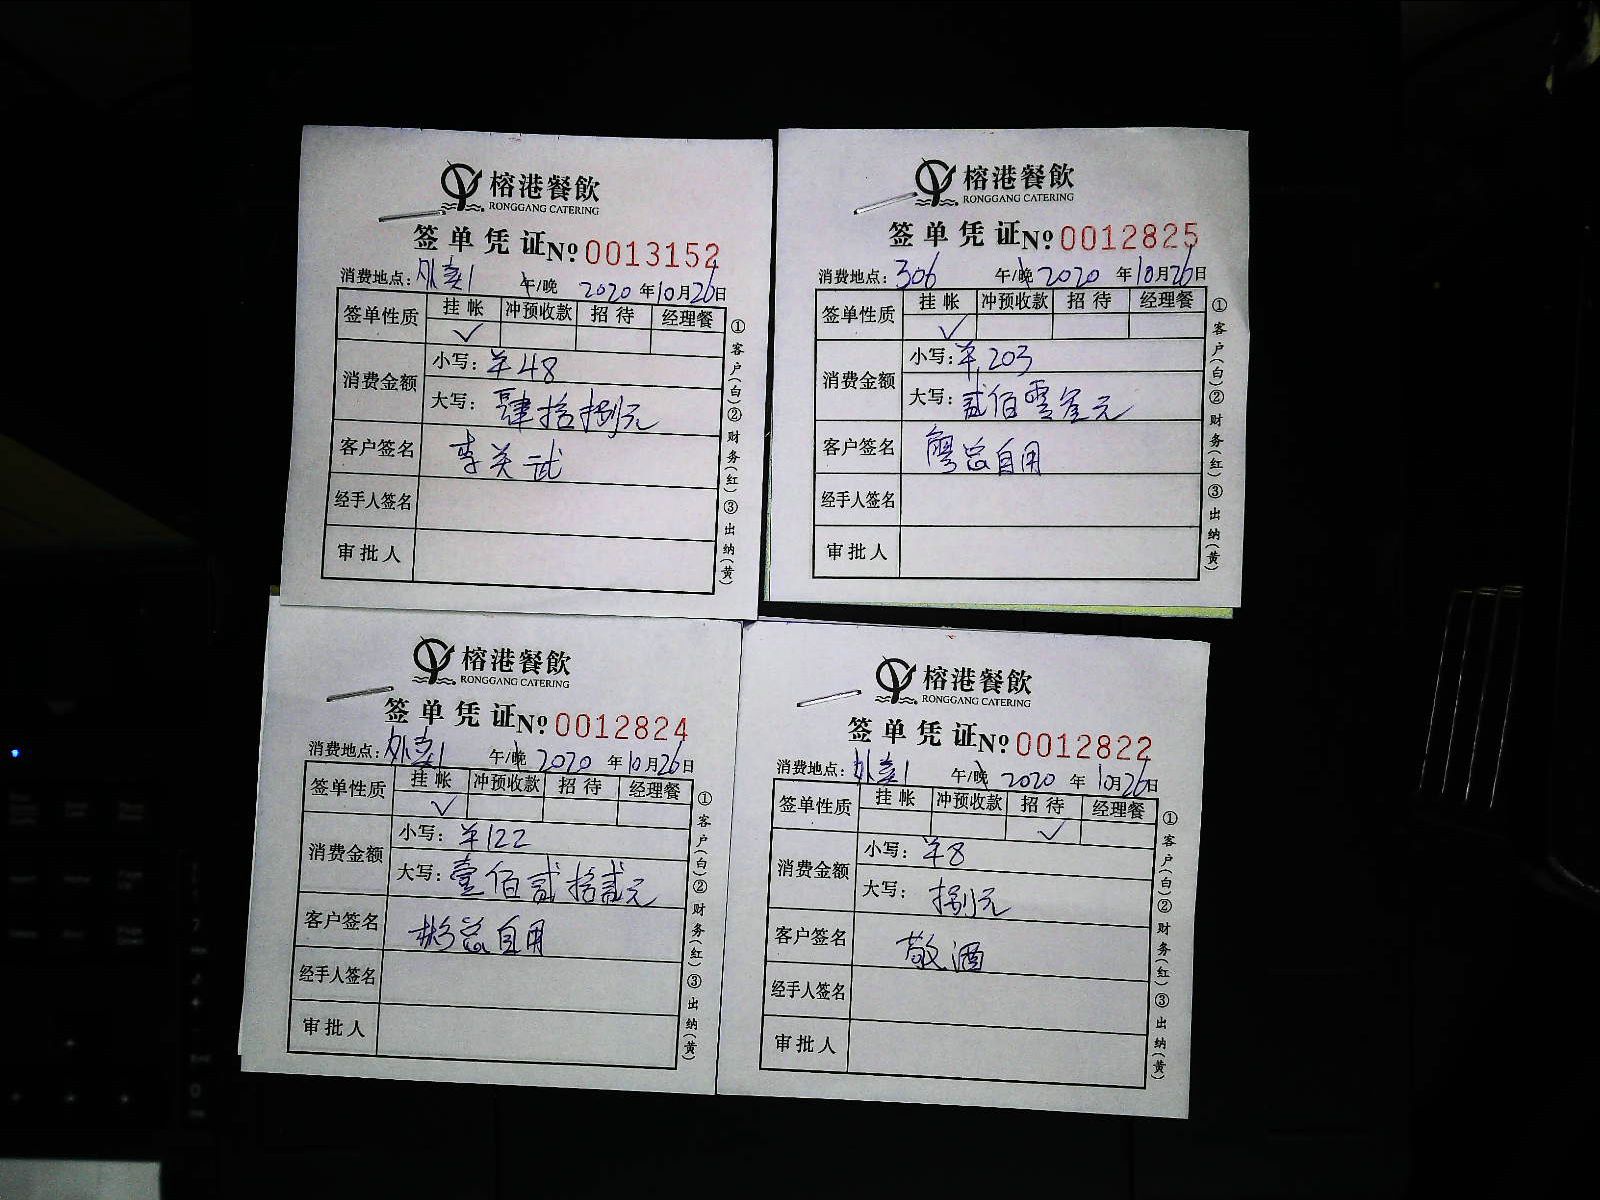 榕港餐飲
RONGGANG CATERING
签单凭证 No 0013152
消费地点：外卖1 午/晚 2020年10月26日
签单性质 挂帐 冲预收款 招待 经理餐
✓
消费金额 小写：￥48
大写：肆拾捌元
客户签名 李关武
经手人签名
审批人
①客户(白)②财务(红)③出纳(黄)
榕港餐飲
RONGGANG CATERING
签单凭证 No 0012825
消费地点：306 午/晚 2020年10月26日
签单性质 挂帐 冲预收款 招待 经理餐
✓
消费金额 小写：￥203
大写：贰佰零叁元
客户签名 总自用
经手人签名
审批人
①客户(白)②财务(红)③出纳(黄)
榕港餐飲
RONGGANG CATERING
签单凭证 No 0012824
消费地点：外卖1 午/晚 2020年10月26日
签单性质 挂帐 冲预收款 招待 经理餐
✓
消费金额 小写：￥122
大写：壹佰贰拾贰元
客户签名 彬总自用
经手人签名
审批人
①客户(白)②财务(红)③出纳(黄)
榕港餐飲
RONGGANG CATERING
签单凭证 No 0012822
消费地点：外卖1 午/晚 2020年10月26日
签单性质 挂帐 冲预收款 招待 经理餐
✓
消费金额 小写：￥8
大写：捌元
客户签名 敬酒
经手人签名
审批人
①客户(白)②财务(红)③出纳(黄)